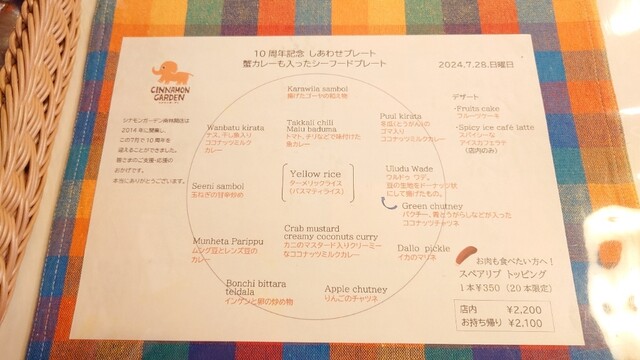 10周年記念 しあわせプレート
蟹カレーも入ったシーフードプレート
2024,7.28.日曜日
CINNAMON
GARDEN
2014年に開業し、
この7月で10周年を
迎えることができました。
皆さまのご支援・応援の
おかげです。
本当にありがとうございます。
Karawila sambol
揚げたゴーヤの和え物
Wanbatu kirata
ナス、干し魚入り
ココナッツミルク
カレー
Takkali chili
Malu baduma
トマト、チリなどで味付けた
魚カレー
Puul kirata
冬瓜(とうがん)の
ゴマ入り
ココナッツミルクカレー
デザート
・Fruits cake
フルーツケーキ
・Spicy ice café latte
スパイシーな
アイスカフェラテ
(店内のみ)
Yellow rice
ターメリックライス
(バスマティライス)
Seeni sambol
玉ねぎの甘辛炒め
Uludu Wade
ウルドゥ ワデ。
豆の生地をドーナッツ状
にして揚げたもの。
Green chutney
パクチー、青とうがらしなどが入った
ココナッツチャツネ
Munheta Parippu
ムング豆とレンズ豆の
カレー
Crab mustard
creamy coconuts curry
カニのマスタード入りクリーミー
なココナッツミルクカレー
Dallo pickle
イカのマリネ
Bonchi bittara
teldala
インゲンと卵の炒め物
Apple chutney
りんごのチャツネ
お肉も食べたい方へ!
スペアリブ トッピング
1本¥350 (20本限定)
店内 ¥2,200
お持ち帰り ¥2,100